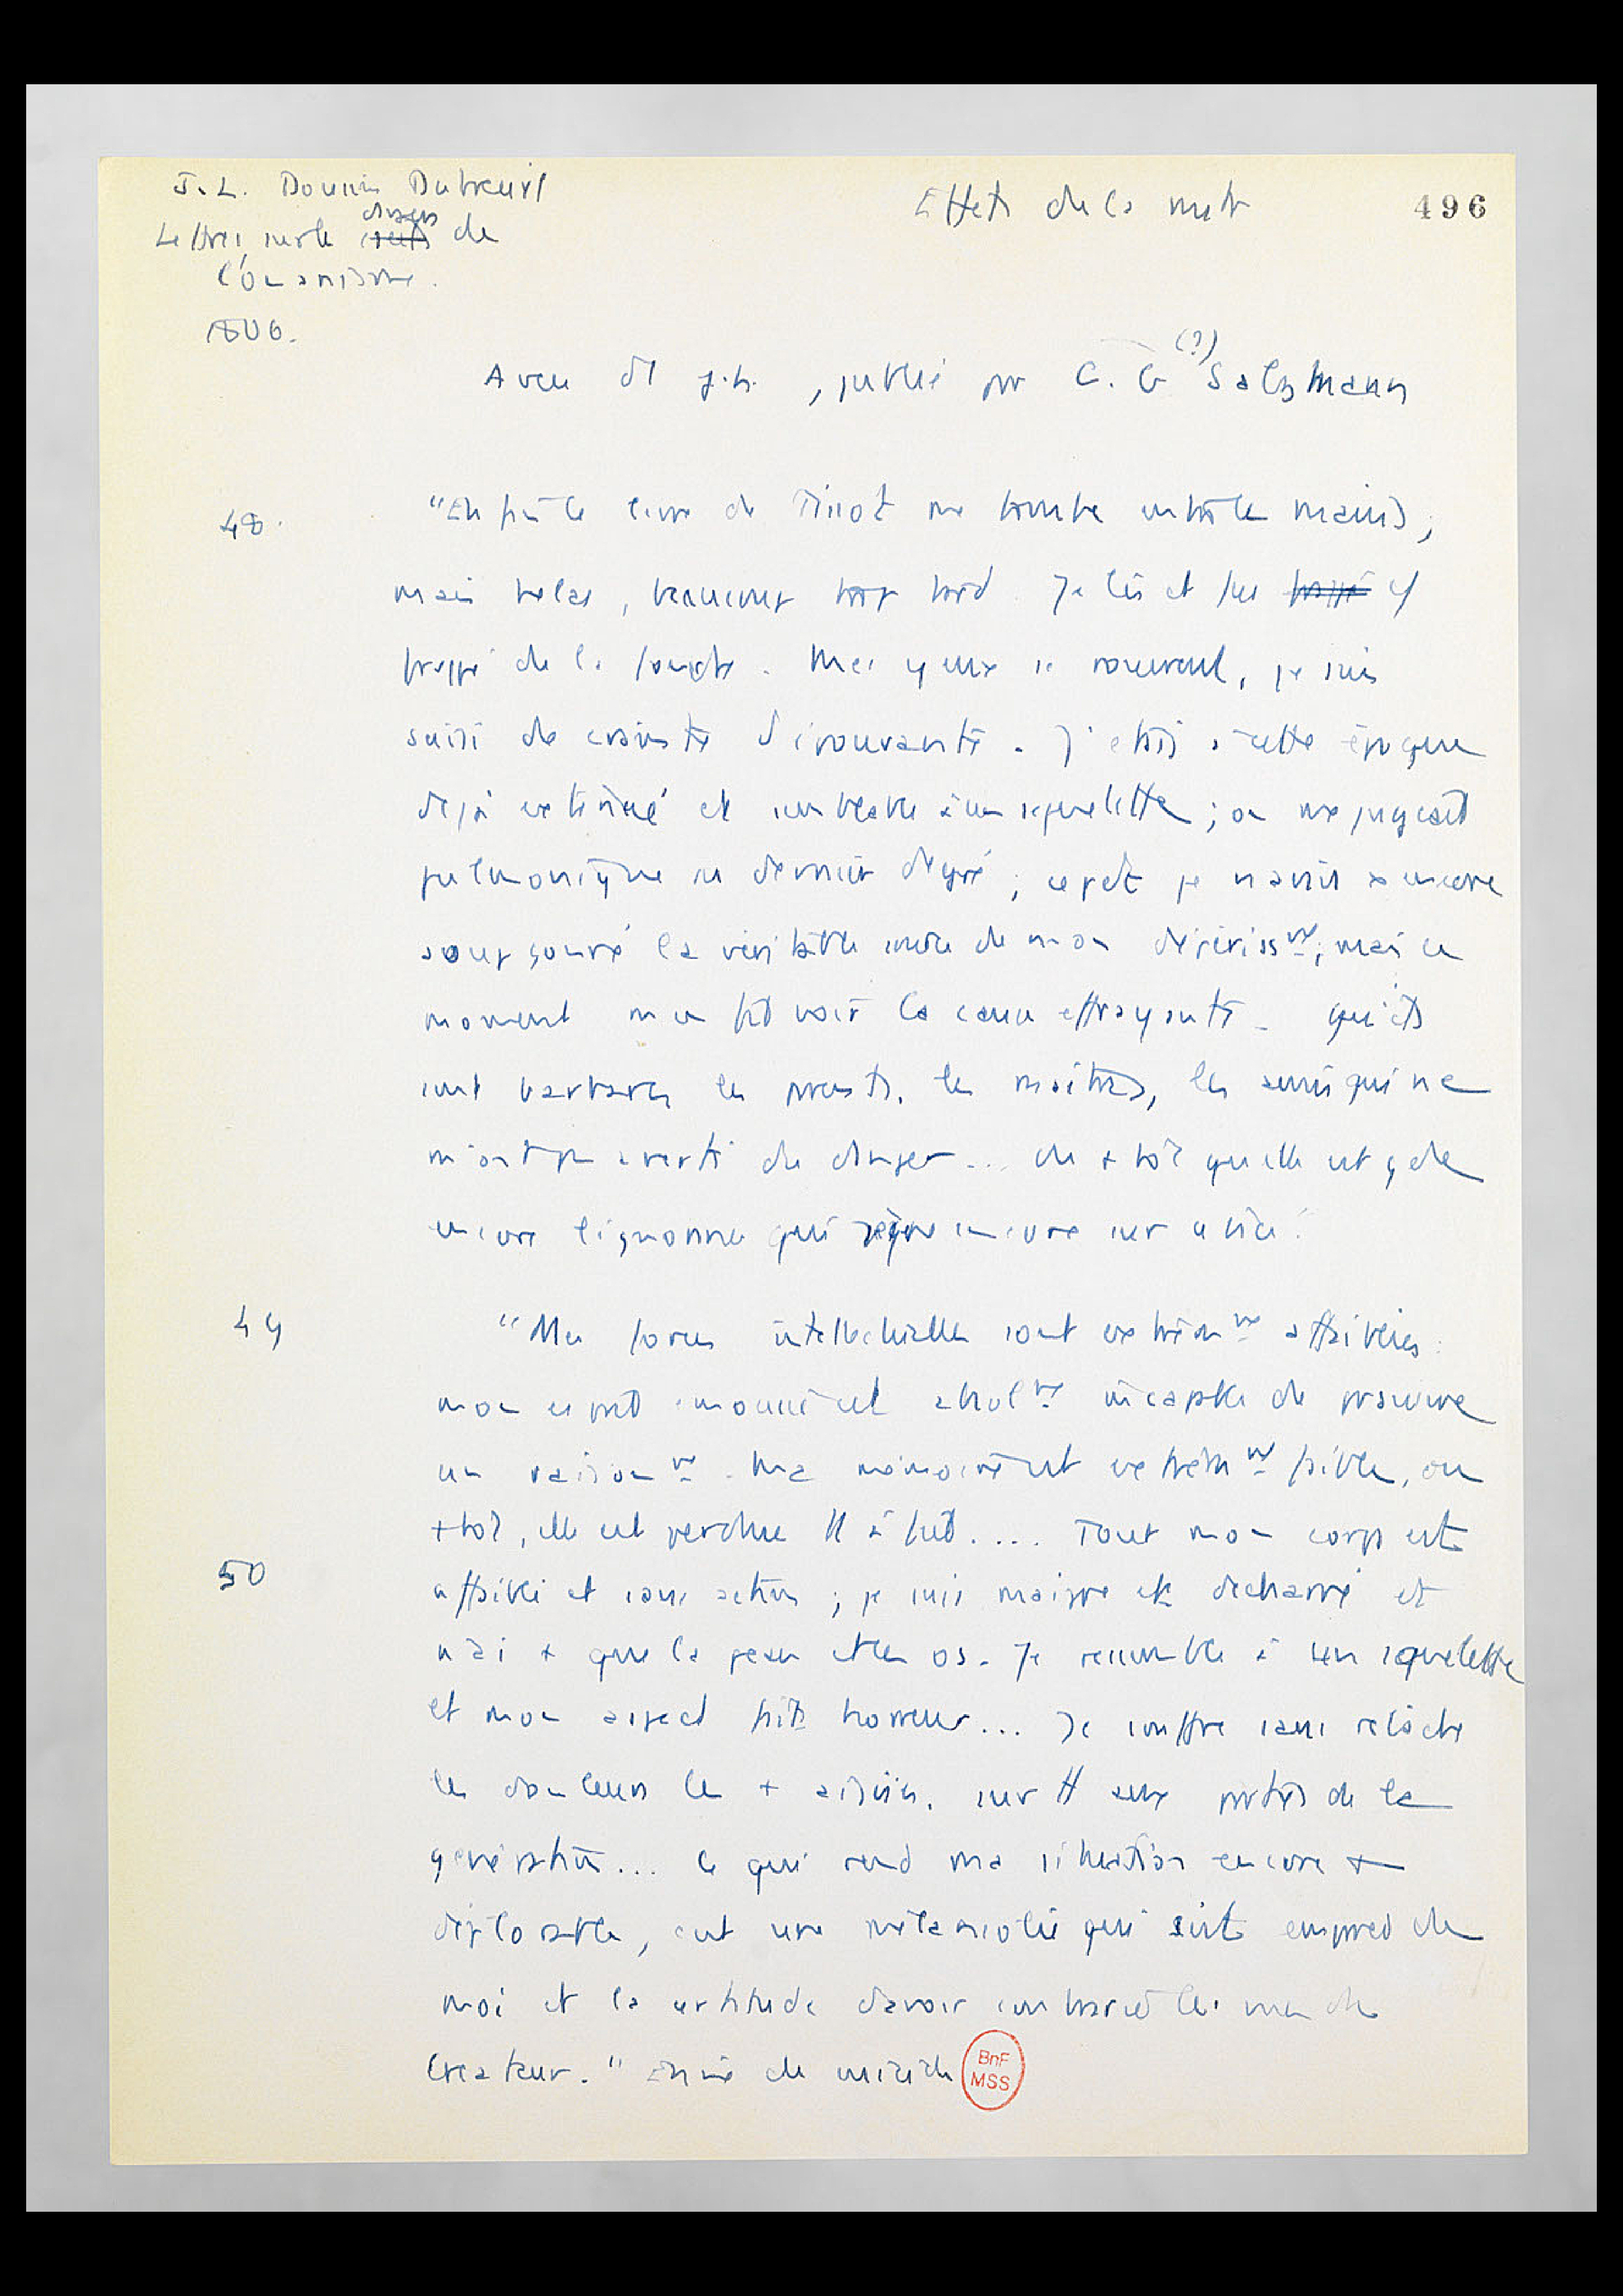 J.-L. Doussin Dubreuil
Lettres sur les dangers de
l'onanisme.
1806.
Effets de la mast
496
Aveu d'1 j.h., publié par C. G (?) Salzmann
48.
"Enfin le livre de Tissot me tombe entre les mains,
mais helas, beaucoup trop tard. Je lis et suis cô
frappé de la foudre. Mes yeux se rouvrent, je suis
saisi de crainte d'épouvante. J'étais à cette époque
déjà exténué et semblable à un squelette; on me jugeait
pulmonique au dernier degré; cepdt je n'avais encore
soupçonné la véritable source de mon dépérissmt; mais ce
moment m'en fit voir la cause effrayante. Qu'ils
sont barbares les parents, les maîtres, les amis qui ne
m'ont pas averti du danger... de + tôt quelle est gde
encore l'ignorance qui règne encore sur ce vice!
49
"Mes forces intellectuelles sont extrêmmt affaiblies:
mon esprit émoussé est absolmt incapable de poursuivre
un raisonmt. Ma mémoire est extrêmmt faible, ou
+tôt, elle est perdue tt à fait.... Tout mon corps est
50
affaibli et sans action; je suis maigre et décharné et
n'ai + que la peau et les os. Je ressemble à un squelette
et mon aspect fait horreur... Je souffre sans relâche
les douleurs les + aigües, sur tt aux parties de la
génération... Ce qui rend ma situation encore +
déplorable, c'est une mélancolie qui s'est emparé de
moi et la certitude d'avoir contrarié les vues du
Créateur." Envie de suicide
BnF
MSS